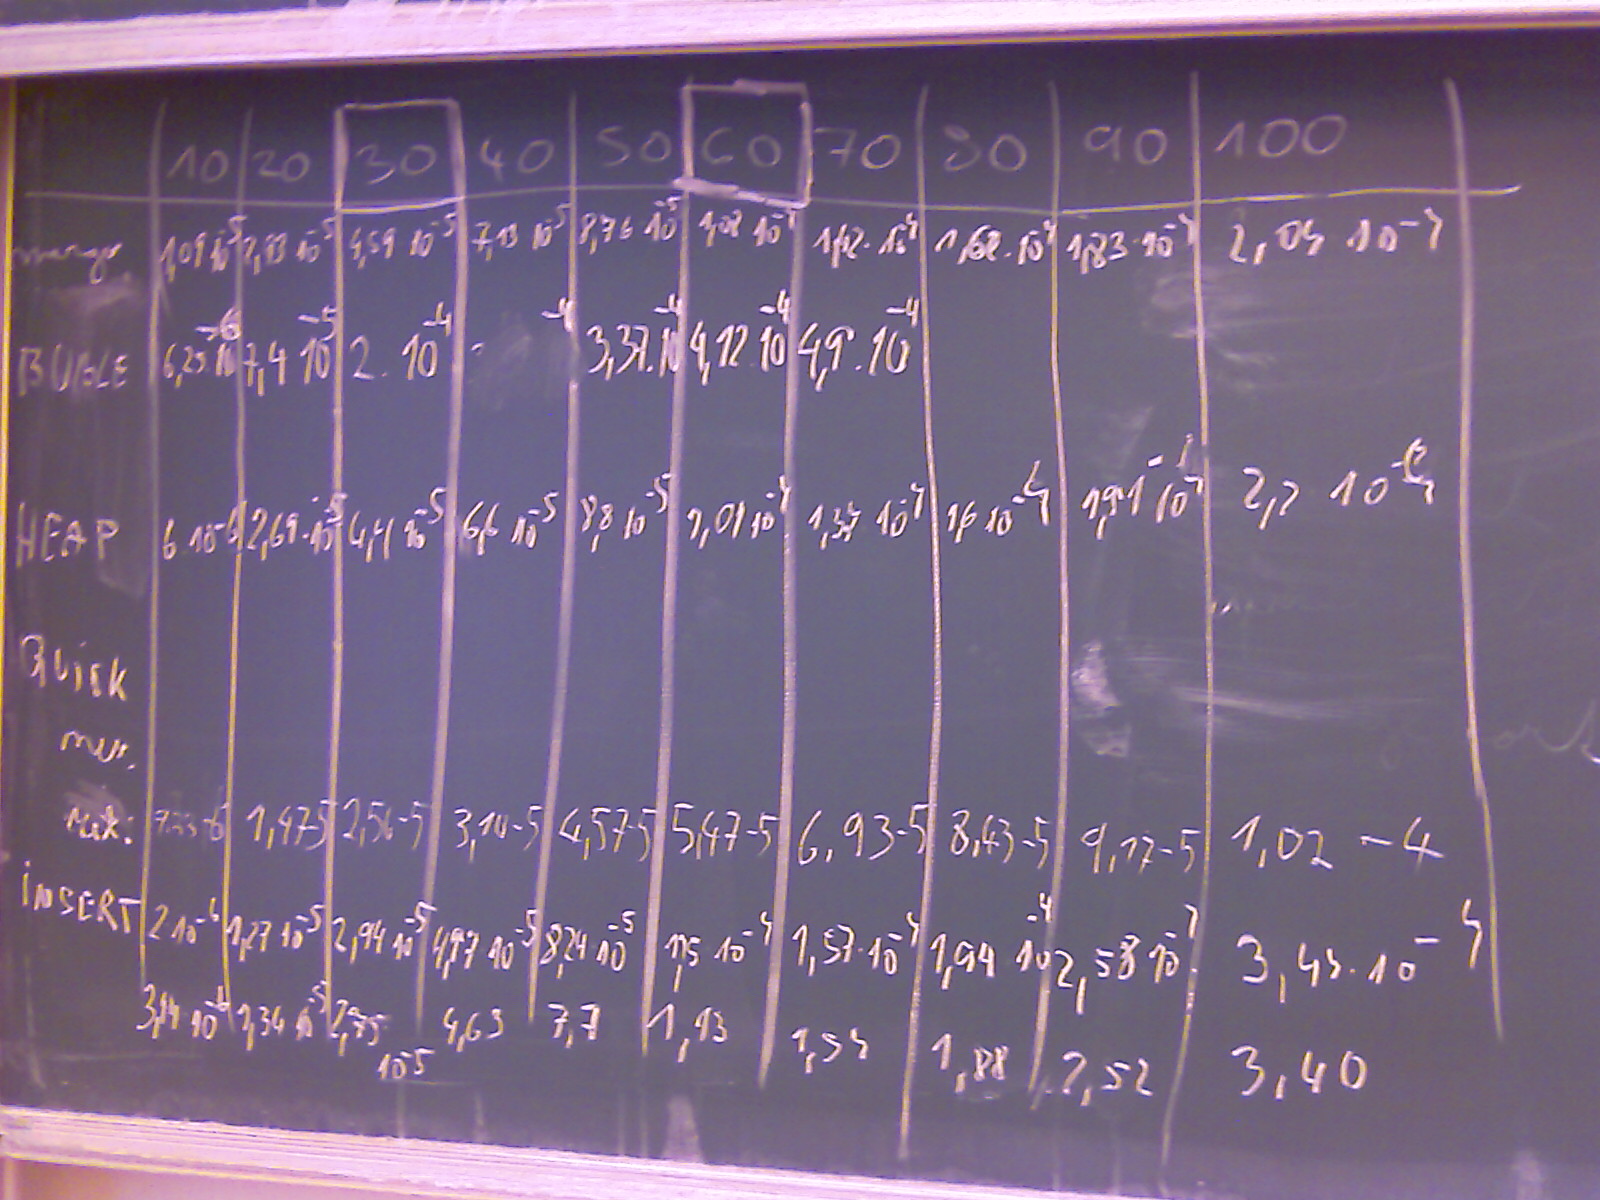 10 20 30 40 50 60 70 80 90 100
merge 1,09 10^-5 2,83 10^-5 4,59 10^-5 7,13 10^-5 8,76·10^-5 1,08 10^-4 1,42·10^-4 1,62·10^-4 1,83·10^-4 2,04 10^-4
BUBLE 6,25·10^-6 7,4 10^-5 2·10^-4 -4 3,37·10^-4 4,12·10^-4 4,9·10^-4
HEAP 6·10^-6 2,69·10^-5 4,4 10^-5 6,6 10^-5 8,8 10^-5 1,01 10^-4 1,37 10^-4 1,6 10^-4 1,91 10^-4 2,2 10^-4
Quick
rek: -6 1,47-5 2,56-5 3,10-5 4,57-5 5,47-5 6,93-5 8,43-5 9,17-5 1,02 -4
INSERT 2 10^-6 1,27 10^-5 2,94 10^-5 4,97 10^-5 8,24·10^-5 1,15 10^-4 1,57·10^-4 1,94 10^-4 2,58 10^-4 3,45·10^-4
3,14·10^-6 1,34 10^-5 2,75 10^-5 4,63 7,7 1,13 1,54 1,88 2,52 3,40